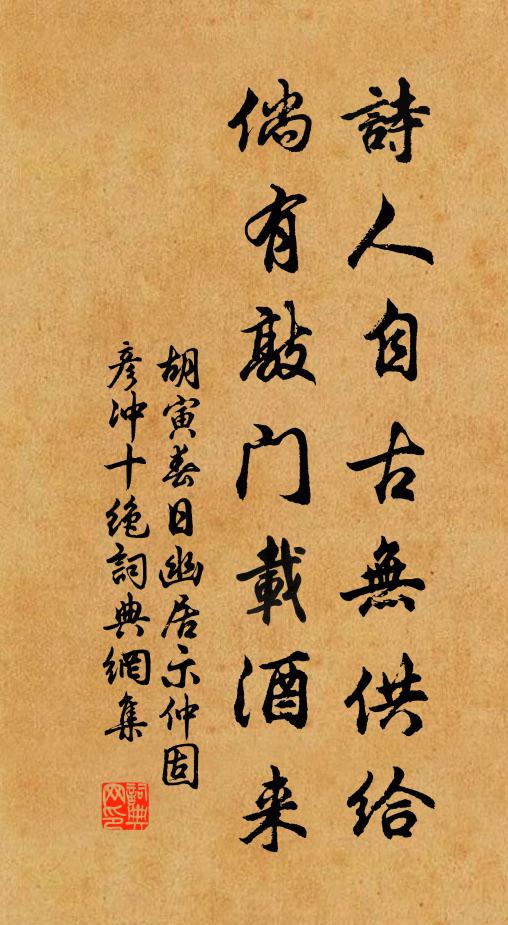 詩人自古無供給
倘有敲门載酒来
胡寅春日幽居示仲固
彦冲十绝詞典網集
詞典网印